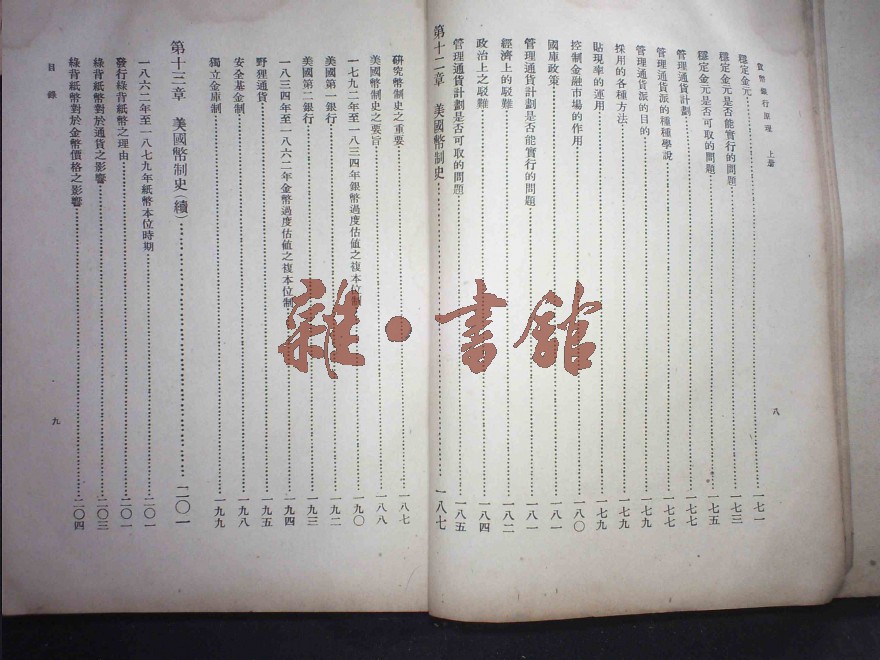 貨幣銀行原理 上册
穩定金元……一七一
穩定金元是否能實行的問題……一七三
穩定金元是否可取的問題……一七五
管理通貨計劃……一七七
管理通貨派的種種學說……一七七
管理通貨派的目的……一七九
採用的各種方法……一七九
貼現率的運用……一七九
控制金融市場的作用……一八〇
國庫政策……
管理通貨計劃是否能實行的問題……一八一
經濟上的駁難……一八二
政治上之駁難……一八四
管理通貨計劃是否可取的問題……一八五
第十二章 美國幣制史……一八七
八
研究幣制史之重要……一八七
美國幣制史之要旨……一八八
一七九二年至一八三四年銀幣過度估値之複本位制……一九〇
美國第一銀行……一九二
美國第二銀行……一九三
一八三四年至一八六二年金幣過度估値之複本位制……一九四
野狸通貨……一九五
安全基金制……一九八
獨立金庫制……一九九
第十三章 美國幣制史(續)……二〇一
一八六二年至一八七九年紙幣本位時期……二〇一
發行綠背紙幣之理由……二〇一
綠背紙幣對於通貨之影響……二〇三
綠背紙幣對於金幣價格之影響……二〇四
目錄
九
雜·書館